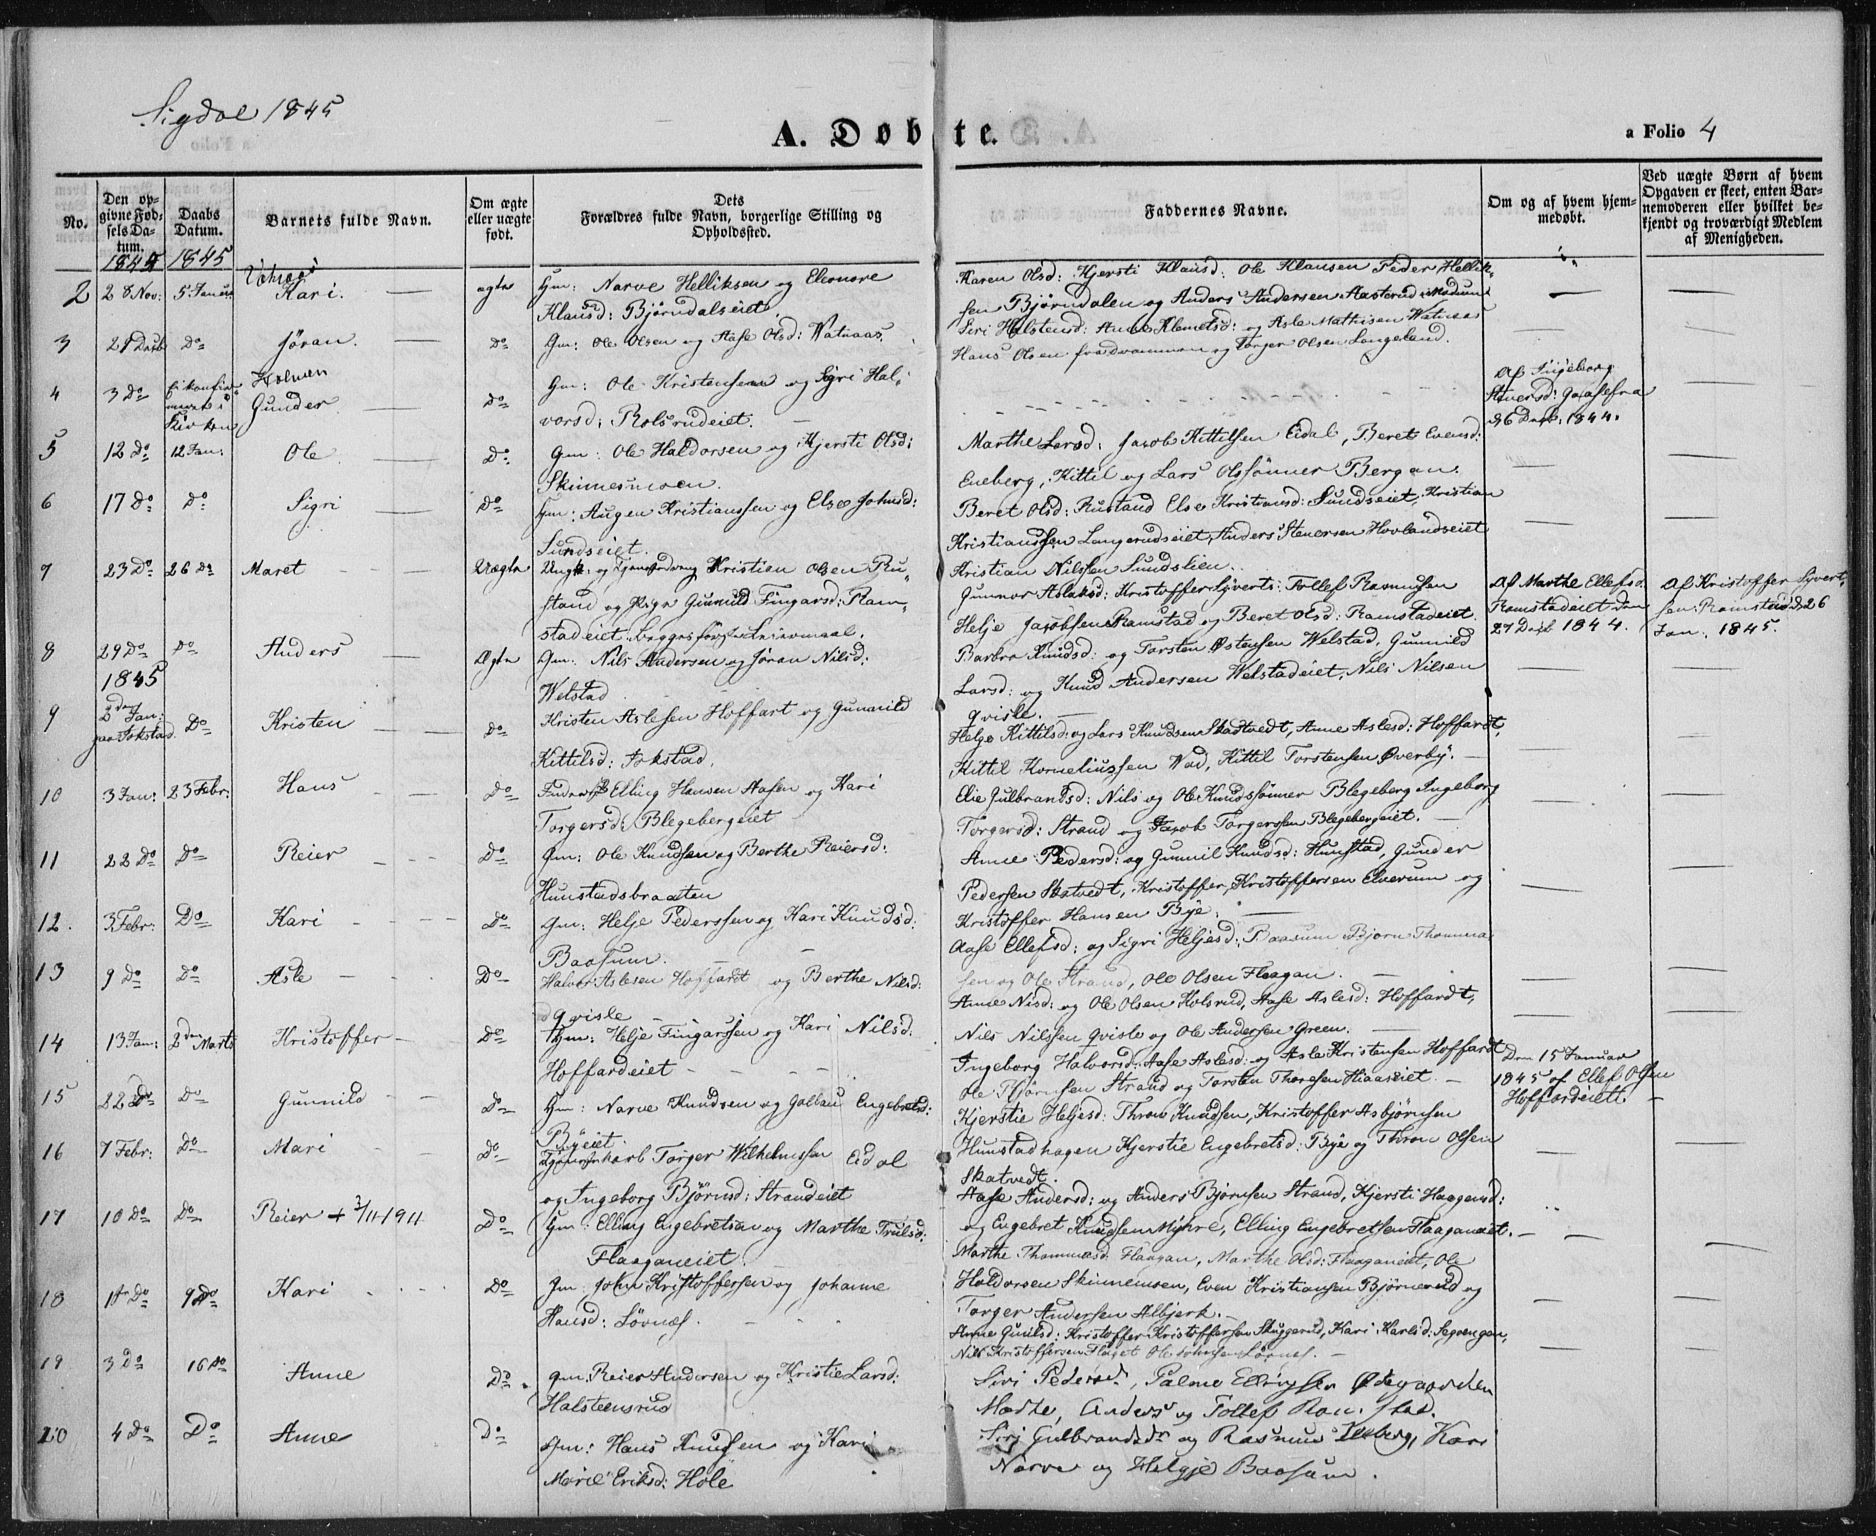 Sigdal 1845
A. Døbte.
a Folio 4
No.
Den opgivne Fødsels Datum.
Daabs Datum.
Barnets fulde Navn.
Om ægte eller uægte født.
Dets Forældres fulde Navn, borgerlige Stilling og Opholdssted.
Faddernes Navne.
Om og af hvem hjemmedøbt.
Ved uægte Børn af hvem Opgaven er skeet, enten Barnemoderen eller hvilket bekjendt og troværdigt Medlem af Menigheden.
1844 1845
2 28 Nov: 5 Januar Kari. ægte Hm: Narve Helliksen og Eleonore
Klausd: Bjørndalseiet.
Karen Olsd: Kjersti Klausd: Ole Klausen Peder Hellik-
sen Bjørndalen og Anders Andersen Aasterud Modum
3 Do Jøran. Do Gm: Ole Olsen og Aase Olsd: Watnaas.
Siri Holstensd: Anne Klemetsd: og Asle Mathisen Watnaas
Hans Olsen fra Drammen og Torger Olsen Langeland.
4 3 Do Gunder Do Gm: Ole Kristensen og Sigri Hal-
vorsd: Rolsrudeiet.
Af Ingeborg
26 Decb: 1844.
5 12 Do 12 Jan: Ole Do Gm: Ole Haldorsen og Kjersti Olsd:
Skinnesmoen.
Marthe Larsd: Jacob Kittilsen Eidal, Beret Evensd:
Eneberg, Kittil og Lars Olssønner Bergan.
6 17 Do Do Sigri Do Hm: Augen Kristianssen og Else Johnsd:
Sundseiet.
Beret Olsd: Rustand Else Kristiansd: Sundseiet, Kristian
Kristianssen Langerudseiet, Anders Stenersen Hovlandseiet
Kristian Nilssen Sundslien.
7 23 Do 26 Do Maret Uægte Ungk: og Kristien Olsen Ru-
stand og Pige Gunnild Fingarsd: Ram-
stadeiet. begges første Leiermaal.
Gunnor Aslaksd: Kristoffer Syverts: Tollef Rasmussen
Helje Jacobsen Ramstad og Beret Olsd: Ramstadeiet.
Af Marthe Ellefsd:
Ramstadeiet den
27 Decb 1844.
Af Kristoffer Syvert-
sen Ramstad d: 26
Jan. 1845.
8 29 Do Do Anders Ægte Gm: Nils Andersen og Jøran Nilsd:
Welstad
Barbro Knudsd: og Torsten Østensen Welstad, Gunnild
Larsd: og Knud Andersen Welstadeiet, Nils Nilsen
Qvisle.
1845
9 2den Jan: paa Tokstad Do Kristen Do Kristen Aslesen Hoffart og Gunnild
Kittilsd: Tokstad.
Helje Kittilsd: og Lars Knudsen Skatvedt, Anne Aslesd: Hoffardt,
Kittil Korneliussen Wad, Kittil Torstensen Øverby.
10 3 Jan: 23 Febr: Hans Do Elling Hansen Aasen og Kari
Torgersd: Blegebergeiet
Elie Gulbrandsd: Nils og Ole Knudssønner Blegeberg Ingeborg
Torgersd: Strand og Jacob Torgerssen Blegebergeiet.
11 22 Do Do Reier Do Gm: Ole Knudsen og Berthe Reiersd:
Hunstadsbraaten
Anne Pedersd: og Gunnil Knudsd: Hunstad, Gunder
Pedersen Skatvedt, Kristoffer Kristoffersen Elverum og
Kristoffer Hansen Bye.
12. 3 Febr: Do Kari Do Gm: Helje Pederssen og Kari Knudsd:
Baasum.
Aase Ellefsd: og Sigri Heljesd: Baasum Bjørn Thomma-
sen og Ole Strand, Ole Olsen Flaagan.
13 9 Do Do Asle Do Halvor Aslesen Hoffardt og Berthe Nilsd:
Qvisle
Anne Nisd: og Ole Olsen Kolsrud, Aase Aslesd: Hoffardt,
Nils Nilssen Qvisle og Ole Andersen Green.
14 13 Jan: 2den Marts Kristoffer Do Hm: Helje Fingarssen og Kari Nilsd:
Hoffardeiet
Ingeborg Halvorsd: Aase Aslesd: og Asle Kristensen Hoffardt
Ole Bjørnsen Strand og Torsten Thoresen Hiaaseiet.
Den 15 Januar
1845 af Ellef Olsen
Hoffardeiet.
15 22 Do Do Gunnild Do Hm: Narve Knudsen og Golbau Engebretsd:
Byeiet.
Kjerstie Heljesd: Thron Knudsen, Kristoffer Asbjørnsen
Hunstadhagen Kjerstie Engebretsd: Bye og Thron Olsen
Skatvedt.
16 7 Febr: Do Mari Do Torger Wilhelmssen Eidal
og Ingeborg Bjørnsd: Strandeiet
Aase Andersd: og Anders Bjørnsen Strand, Kjersti Haagensd:
og Engebret Knudsen Myhre, Elling Engebretsen Flaaganeiet.
17 10 Do Do Reier + 3/11-1911 Do Hm: Elling Engebretsen og Marthe Trulsd:
Flaaganeiet.
Marthe Thommesd: Flaagan, Marthe Olsd: Flaaganeiet, Ole
Haldorsen Skinnemoen, Even Kristiansen Bjørnerud og
Torger Andersen Albjerk.
18 Do 9 Do Kari Do Gm: John Kristoffersen og Johanne
Hansd: Løvnes.
Anne Gunilsd: Kristoffer Kristoffersen Skuggerud, Kari Karlsd:
Nils Kristoffersen Ole Johnsen Løvnes.
19 3 Do 16 Do Anne Do Gm: Reier Andersen og Kristie Larsd:
Halsteensrud
Siri Pedersd, Palme Ellingsen Ødegaarden
Marthe, Anders og Tollef Ramstad.
20 4 Do Do Anne Do Gm: Hans Knudsen og Kari
Marie Eriksd: Hole
Siri Gulbrandsdr og Rasmus Kari
Narve og Helgje Baasum.